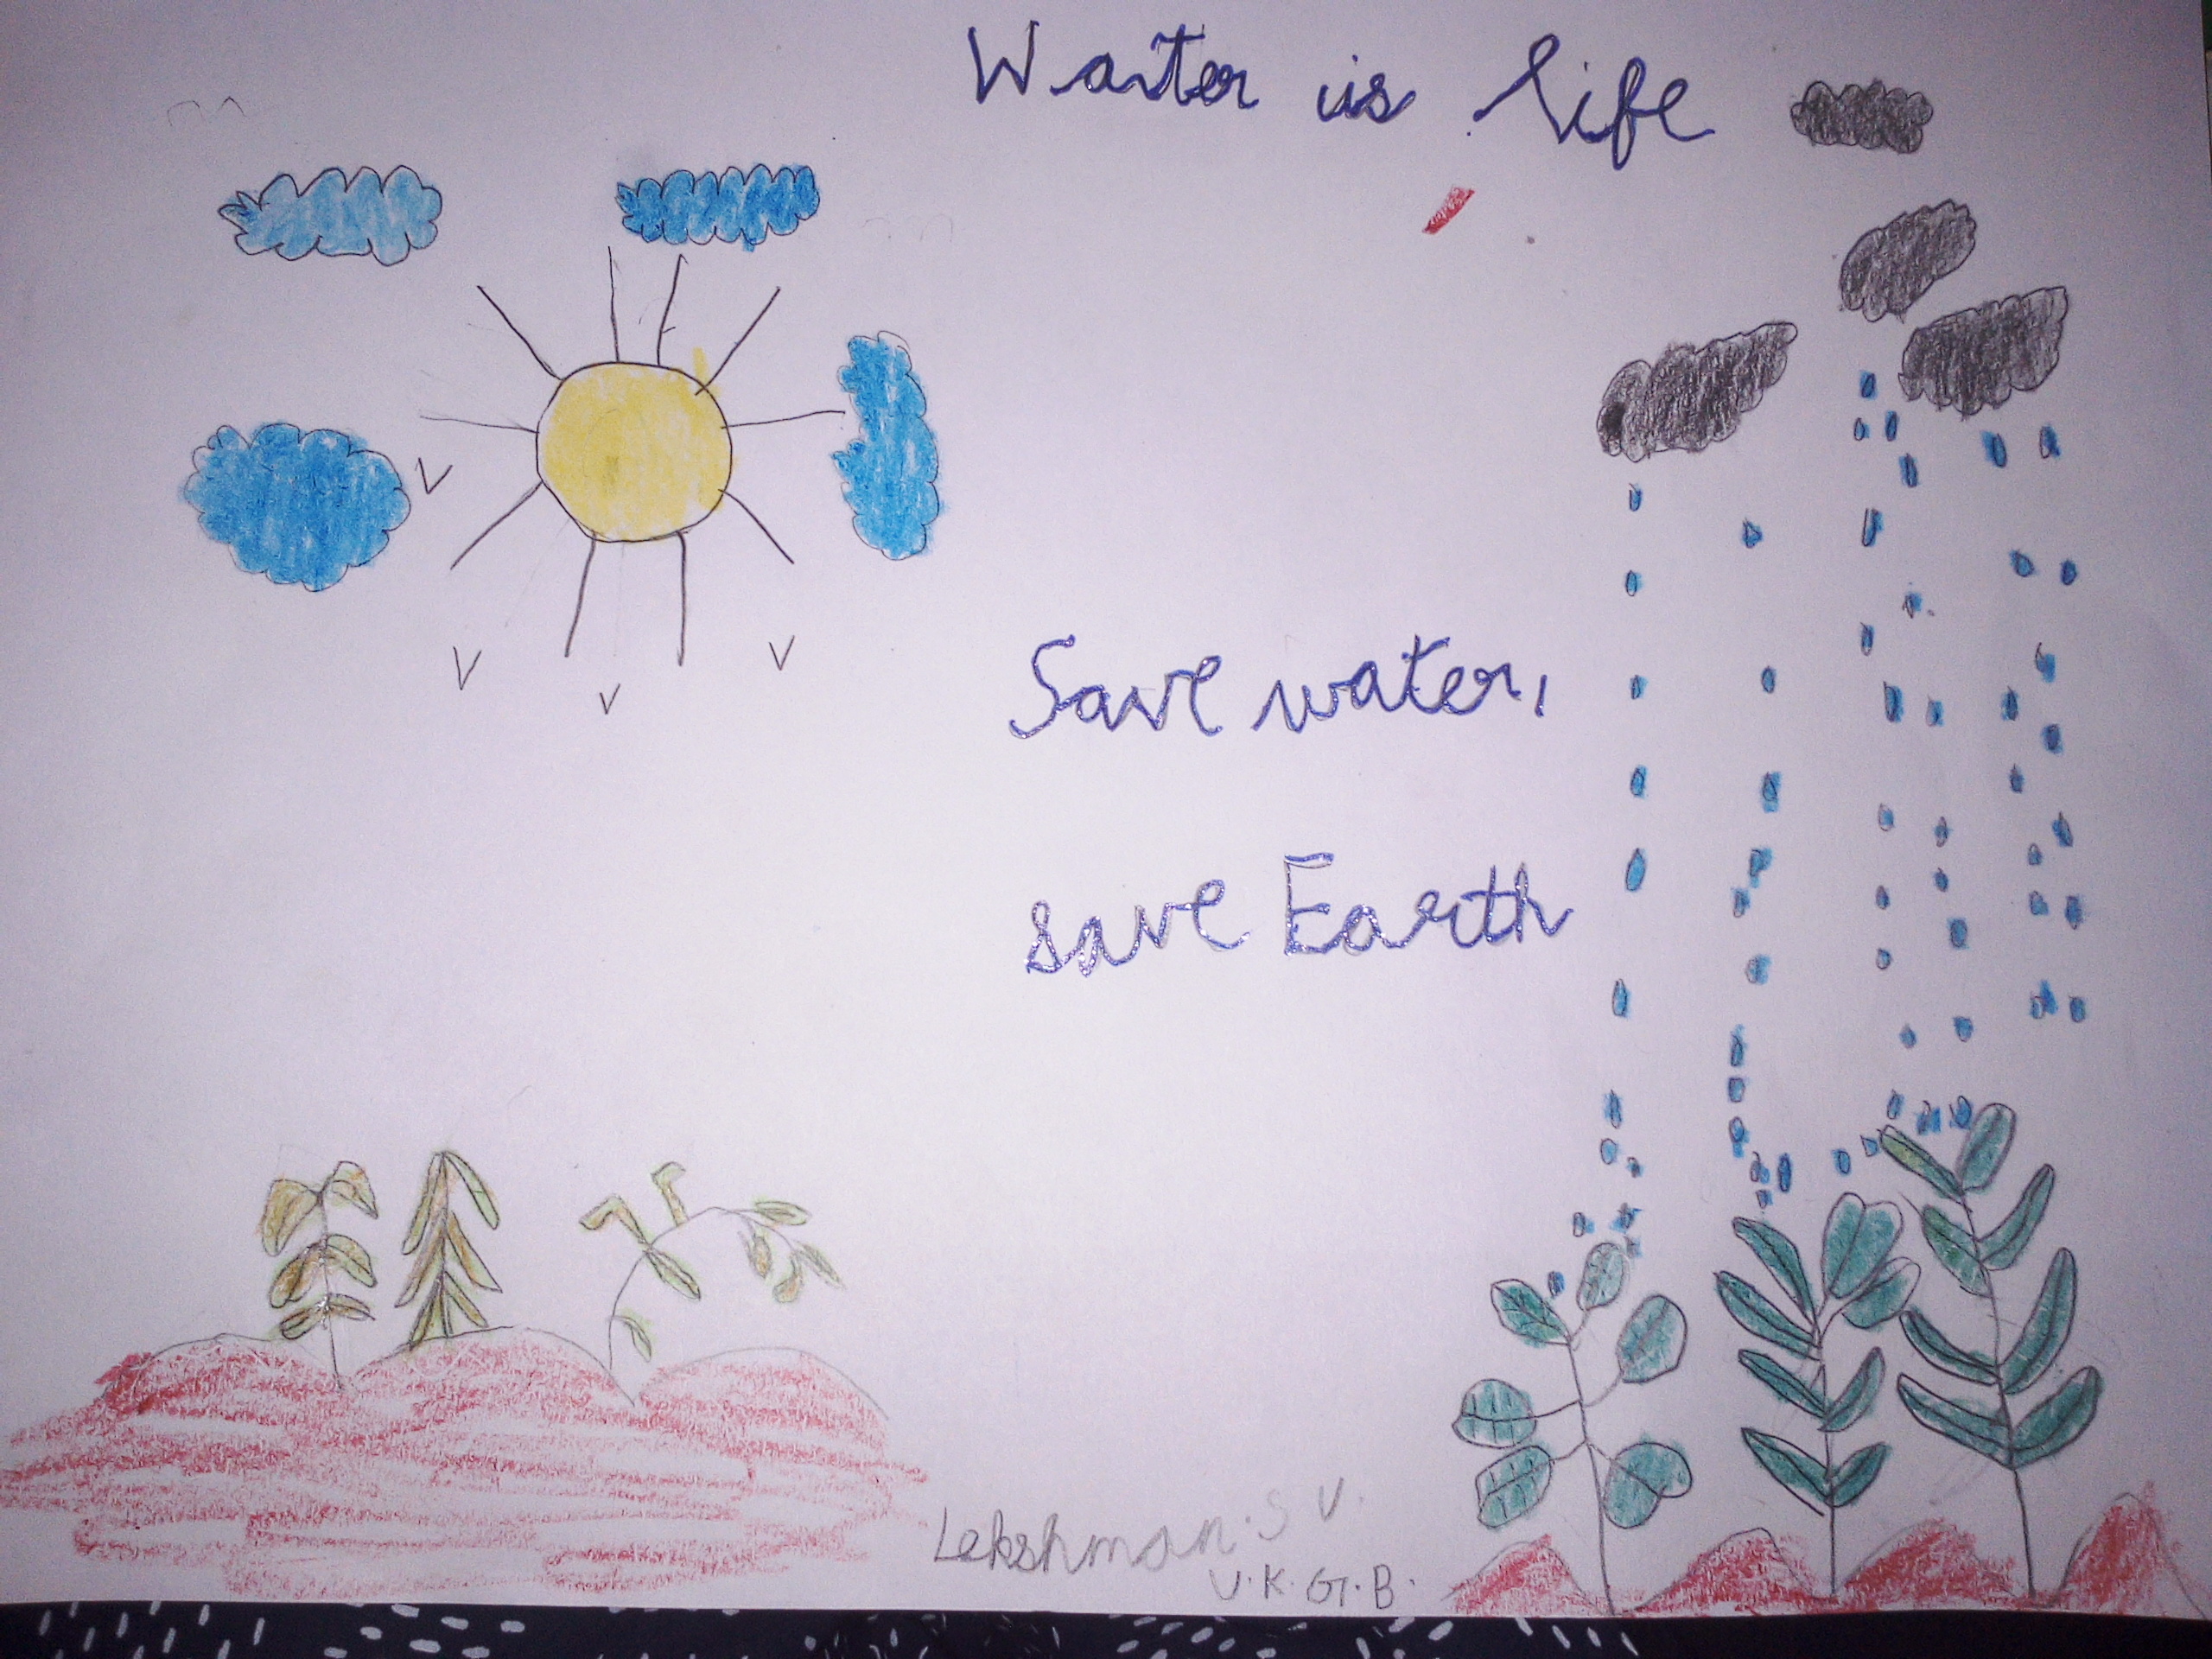 Water is life
Save water,
save Earth
Lekshman.S V.
U.K.G.B.